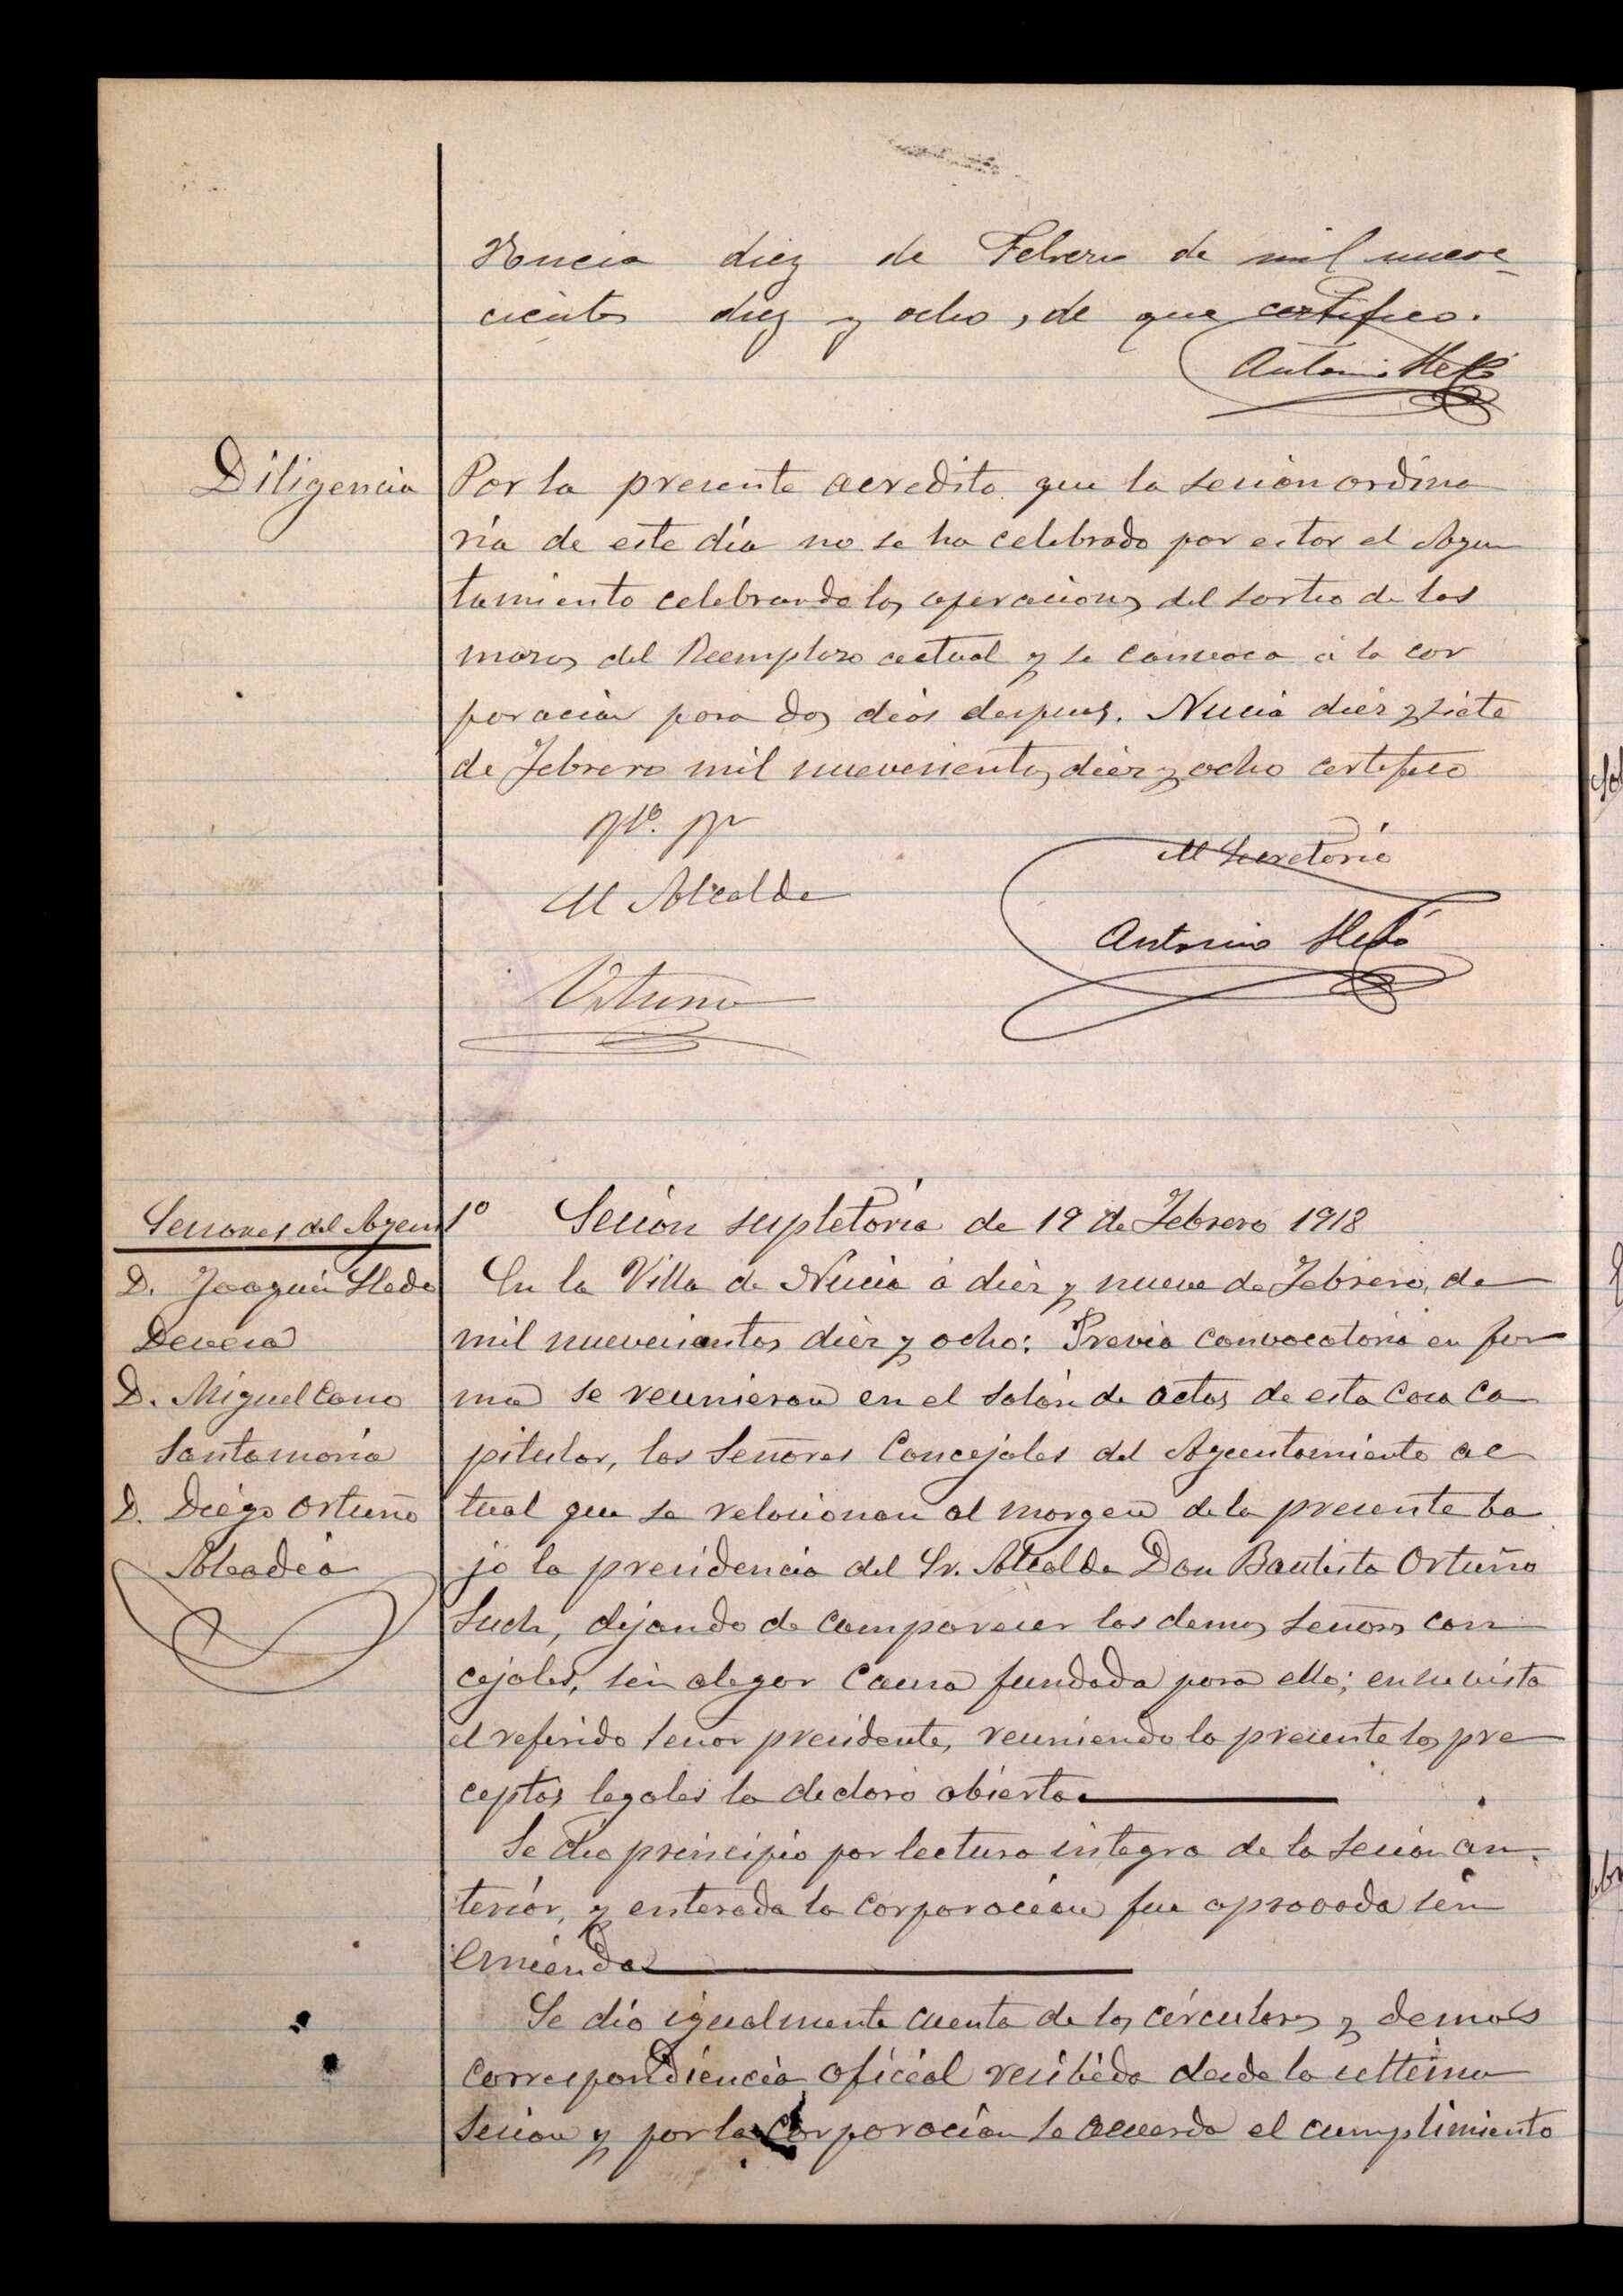 Nucia diez de Febrero de mil nueve-
cientos diez y ocho, de que certifico.
Antonio Lledó
Diligencia
Por la presente acredito que la sesion ordina
ria de este día no se ha celebrado por estar el Ayun
tamiento celebrando las operaciones del sorteo de los
mozos del Reemplazo actual y se convoca á la cor
poración para dos días despues. Nucia diez y siete
de Febrero mil novecientos diez y ocho certifico
Vº. Bº
El Alcalde
Ortuño
El Secretario
Antonio Lledó
Señores del Ayunt
D. Joaquin Lledo
Devesa
D. Miguel Cano
Santamaria
D. Diego Ortuño
Alcadia
1º Sesion supletoria de 19 de Febrero 1918
En la Villa de Nucia á diez y nueve de Febrero, de
mil nuevecientos diez y ocho: Previa convocatoria en for
ma se reunieron en el salón de actos de esta Casa Ca
pitular, los Señores Concejales del Ayuntamiento ac
tual que se relacionan al margen de la presente ba
jo la presidencia del Sr. Alcalde Don Bautista Ortuño
Such, dejando de comparecer los demas señores con
cejales, sin alegar causa fundada para ello; en su vista
el referido señor presidente, reuniendo la presente los pre
ceptos legales la declaró abierta.
Se dio principio por lectura integra de la sesion an
terior, y enterada la corporacion fue aprovada sin
emienda
Se dio igualmente cuenta de las circulares y demas
correspondiencia oficial recibida desde la ultima
sesion y por la corporacion se acuerda el cumplimiento